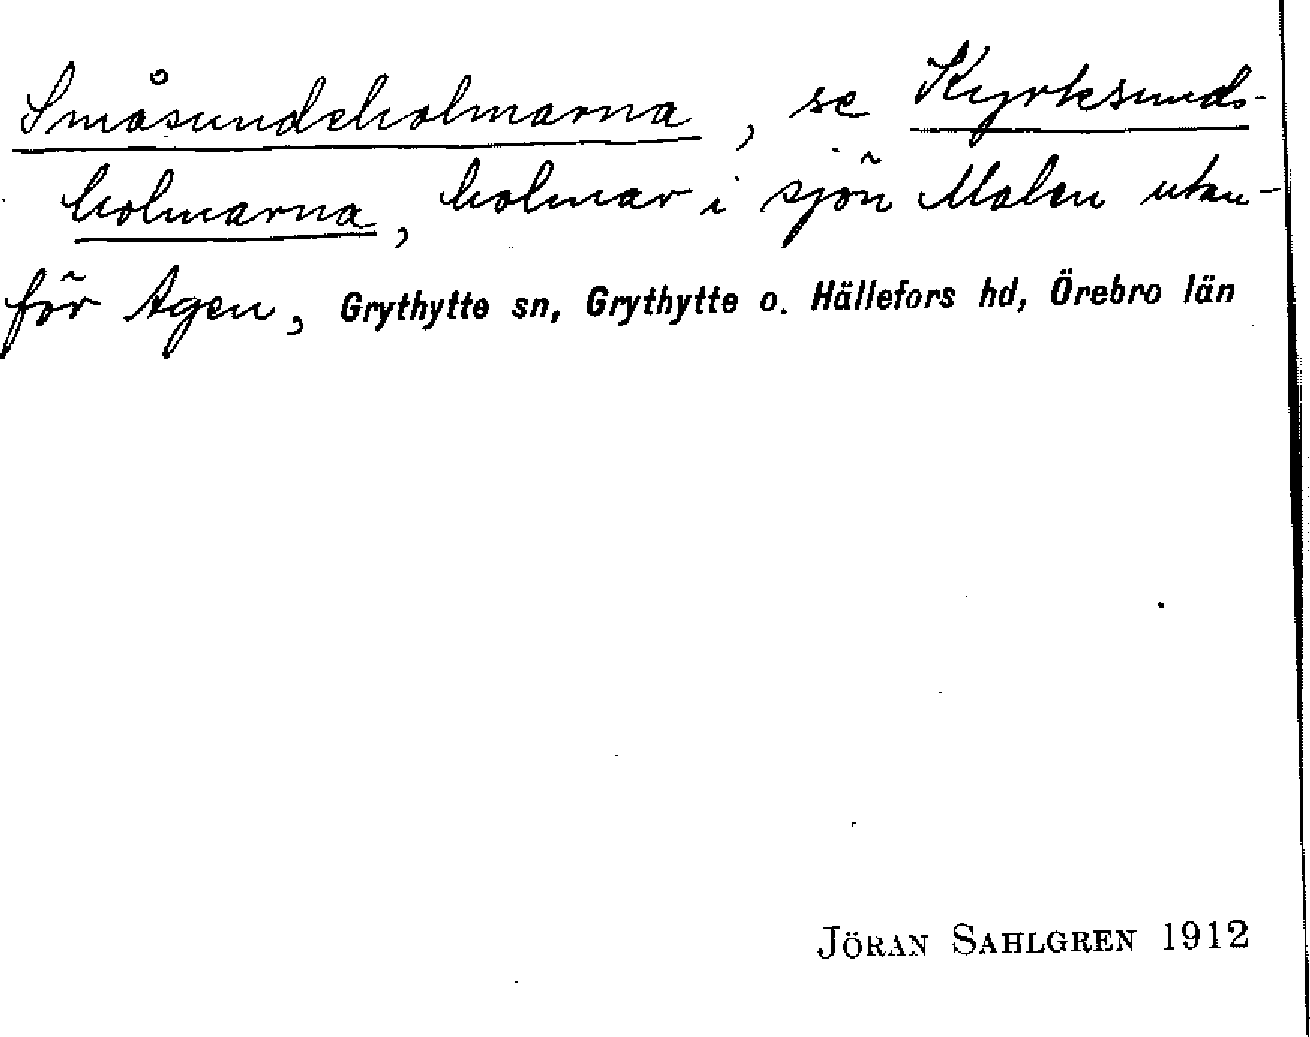 Småsundsholmarna, se Kyrksunds-
holmarna, holmar i sjön Malen utan-
för Agen, Grythytte sn, Grythytte o. Hällefors hd, Örebro län
JÖRAN SAHLGREN 1912